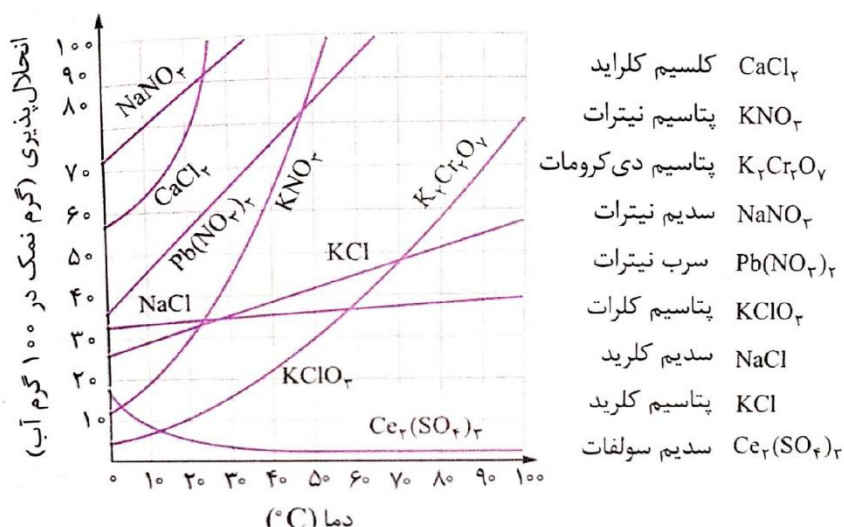 انحلال‌پذیری (گرم نمک در ۱۰۰ گرم آب)
۱۰۰
۹۰
۸۰
۷۰
۶۰
۵۰
۴۰
۳۰
۲۰
۱۰
NaNO۳
CaCl۲
Pb(NO۳)۲
KNO۳
K۲Cr۲O۷
KCl
NaCl
KClO۳
Ce۲(SO۴)۳
۰ ۱۰ ۲۰ ۳۰ ۴۰ ۵۰ ۶۰ ۷۰ ۸۰ ۹۰ ۱۰۰
دما (°C)
CaCl۲ کلسیم کلراید
KNO۳ پتاسیم نیترات
K۲Cr۲O۷ پتاسیم دی‌کرومات
NaNO۳ سدیم نیترات
Pb(NO۳)۲ سرب نیترات
KClO۳ پتاسیم کلرات
NaCl سدیم کلرید
KCl پتاسیم کلرید
Ce۲(SO۴)۳ سدیم سولفات